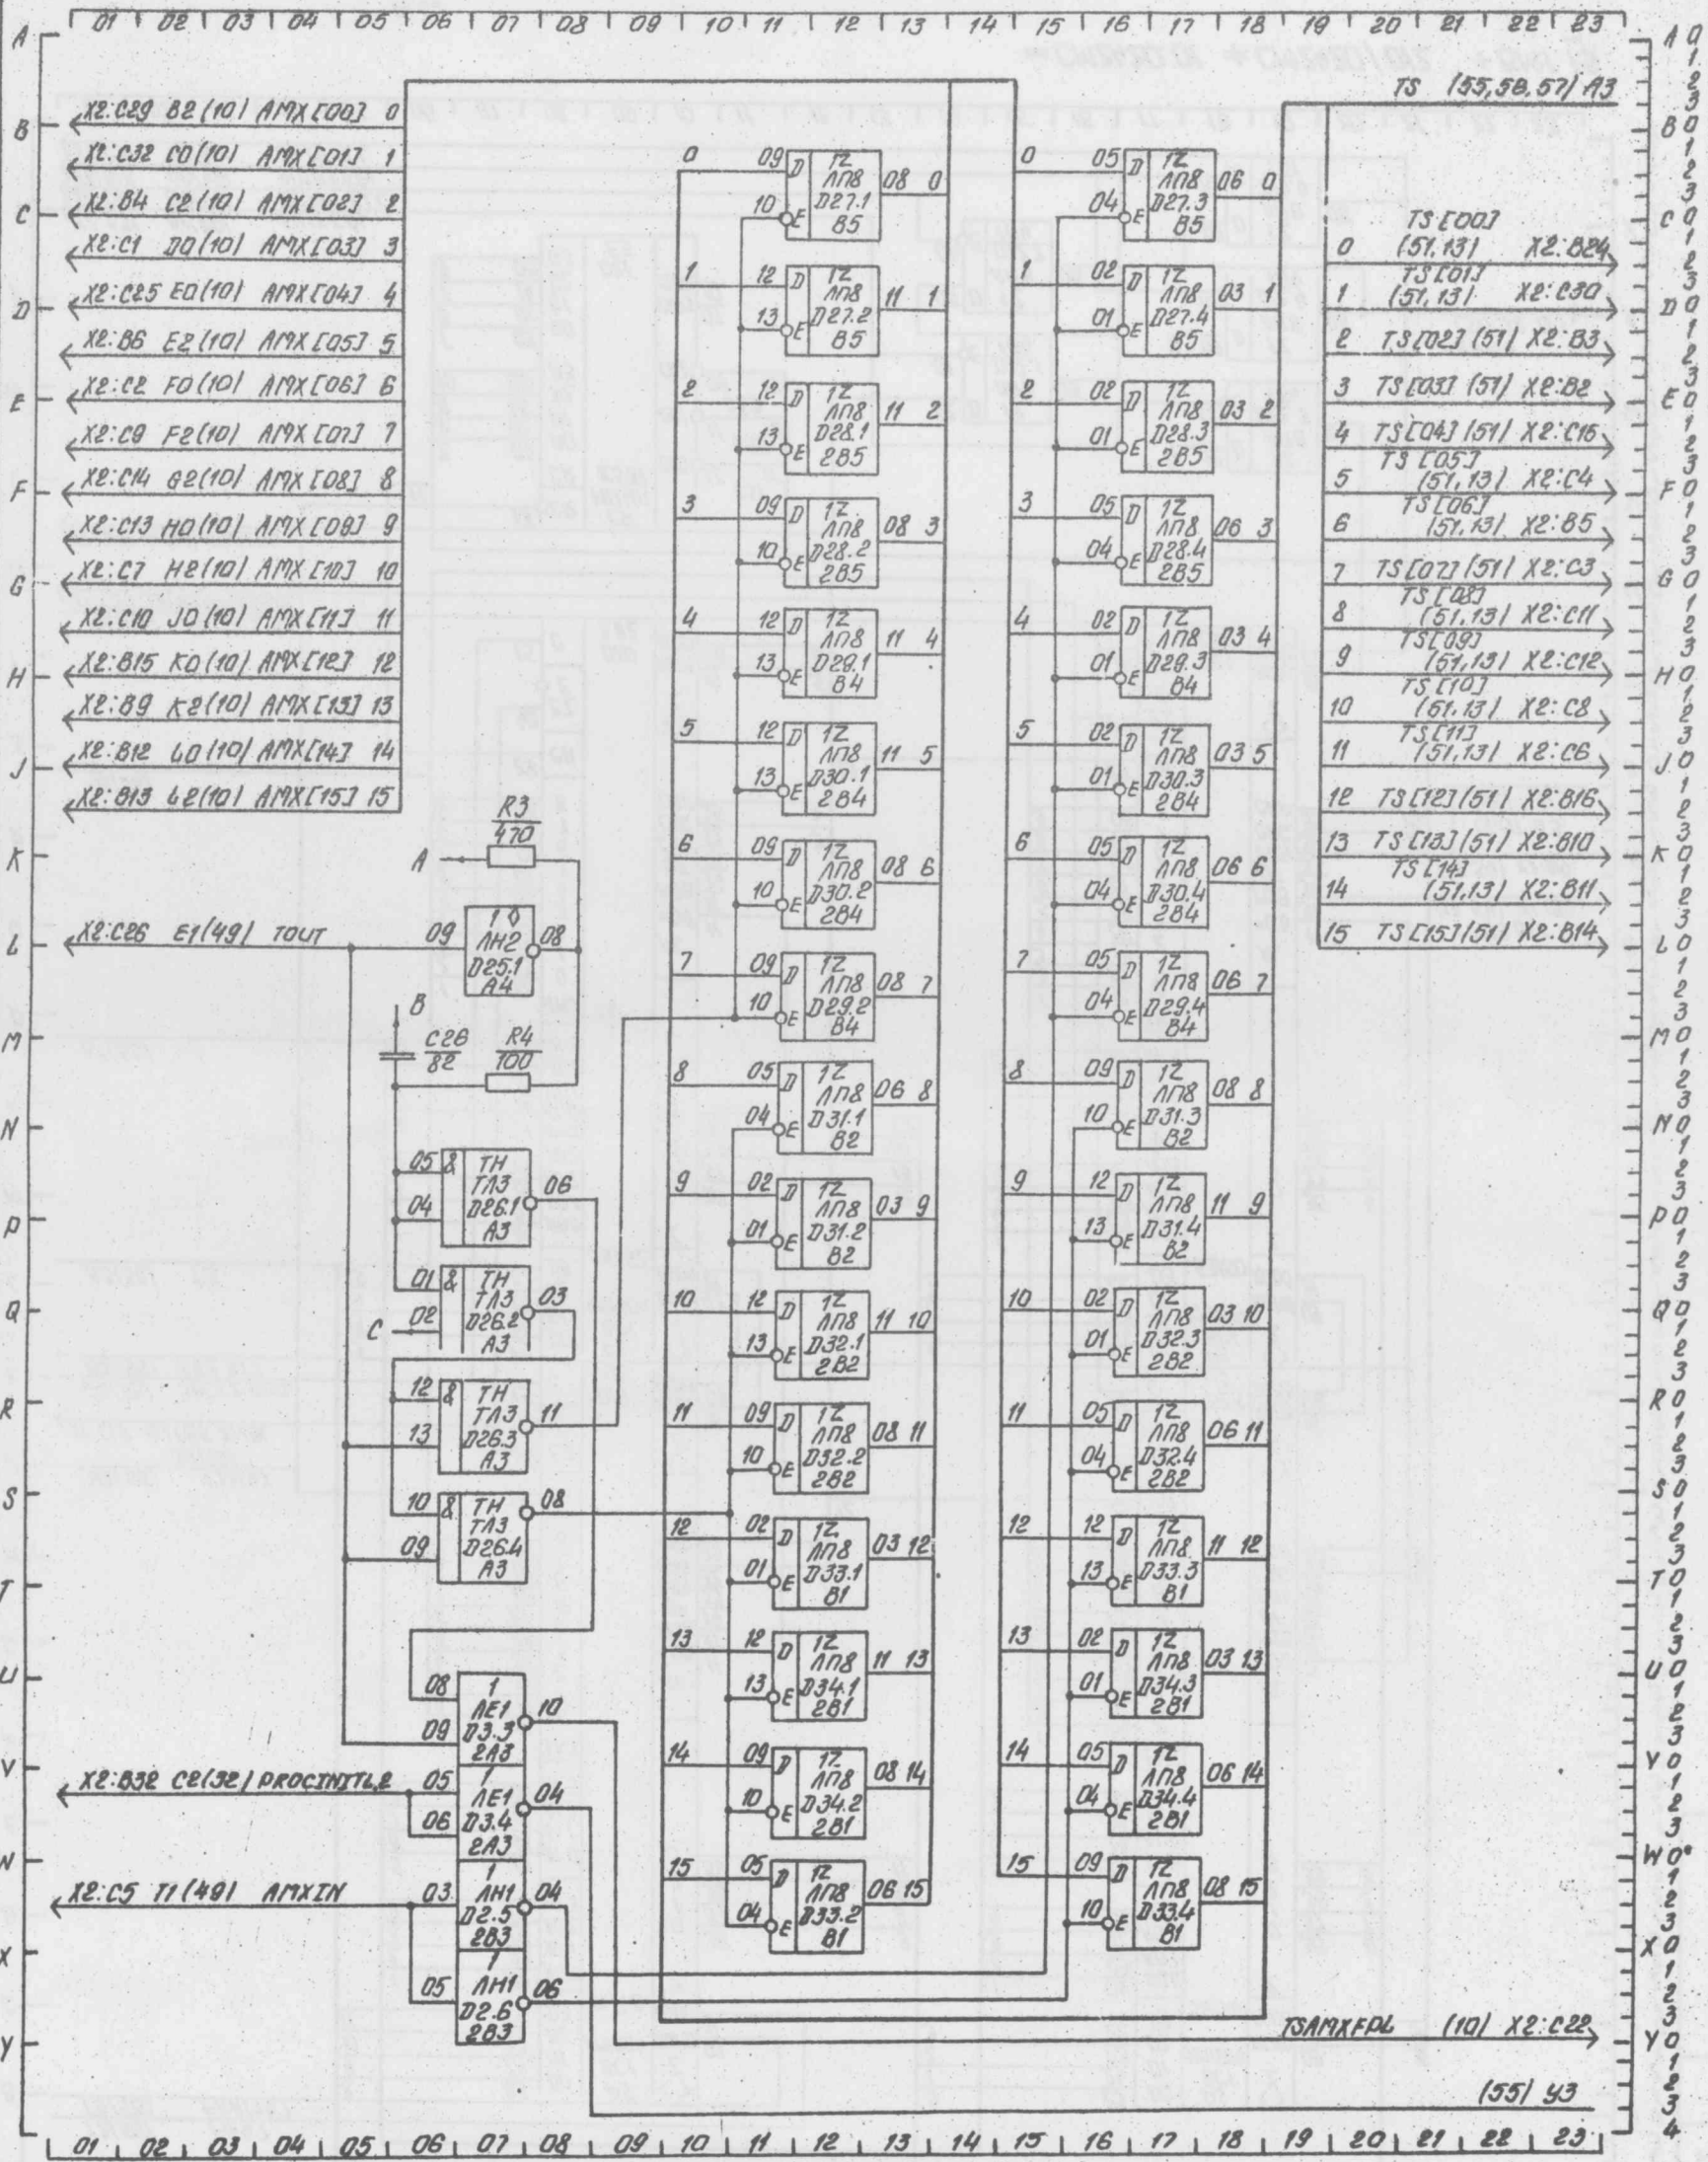 01 02 03 04 05 06 07 08 09 10 11 12 13 14 15 16 17 18 19 20 21 22 23
TS (55,58,57) A3
X2:C29 B2(10) AMX[00] 0
X2:C32 C0(10) AMX[01] 1
X2:B4 C2(10) AMX[02] 2
X2:C1 D0(10) AMX[03] 3
X2:C25 E0(10) AMX[04] 4
X2:B6 E2(10) AMX[05] 5
X2:C2 F0(10) AMX[06] 6
X2:C9 F2(10) AMX[07] 7
X2:C14 G2(10) AMX[08] 8
X2:C13 H0(10) AMX[09] 9
X2:C7 H2(10) AMX[10] 10
X2:C10 J0(10) AMX[11] 11
X2:B15 K0(10) AMX[12] 12
X2:B9 K2(10) AMX[13] 13
X2:B12 L0(10) AMX[14] 14
X2:B13 L2(10) AMX[15] 15
R3
470
A
X2:C26 E1(49) TOUT
09 1 ЛН2 D25.1 A4 08
B
C28
82
R4
100
05 04 & TH ТЛ3 D26.1 A3 06
01 02 & TH ТЛ3 D26.2 A3 03
C
12 13 & TH ТЛ3 D26.3 A3 11
10 09 & TH ТЛ3 D26.4 A3 08
08 09 1 ЛЕ1 D3.3 2A3 10
X2:B32 C2(32) PROCINITL,2
05 06 1 ЛЕ1 D3.4 2A3 04
X2:C5 T1(49) AMXIN
03 1 ЛН1 D2.5 2B3 04
05 1 ЛН1 D2.6 2B3 06
0 09 10 D E 1Z ЛП8 D27.1 B5 08 0
1 12 13 D E 1Z ЛП8 D27.2 B5 11 1
2 12 13 D E 1Z ЛП8 D28.1 2B5 11 2
3 09 10 D E 1Z ЛП8 D28.2 2B5 08 3
4 12 13 D E 1Z ЛП8 D29.1 B4 11 4
5 12 13 D E 1Z ЛП8 D30.1 2B4 11 5
6 09 10 D E 1Z ЛП8 D30.2 2B4 08 6
7 09 10 D E 1Z ЛП8 D29.2 B4 08 7
8 05 04 D E 1Z ЛП8 D31.1 B2 06 8
9 02 01 D E 1Z ЛП8 D31.2 B2 03 9
10 12 13 D E 1Z ЛП8 D32.1 2B2 11 10
11 09 10 D E 1Z ЛП8 D32.2 2B2 08 11
12 02 01 D E 1Z ЛП8 D33.1 B1 03 12
13 12 13 D E 1Z ЛП8 D34.1 2B1 11 13
14 09 10 D E 1Z ЛП8 D34.2 2B1 08 14
15 05 04 D E 1Z ЛП8 D33.2 B1 06 15
0 05 04 D E 1Z ЛП8 D27.3 B5 06 0
1 02 01 D E 1Z ЛП8 D27.4 B5 03 1
2 02 01 D E 1Z ЛП8 D28.3 2B5 03 2
3 05 04 D E 1Z ЛП8 D28.4 2B5 06 3
4 02 01 D E 1Z ЛП8 D29.3 B4 03 4
5 02 01 D E 1Z ЛП8 D30.3 2B4 03 5
6 05 04 D E 1Z ЛП8 D30.4 2B4 06 6
7 05 04 D E 1Z ЛП8 D29.4 B4 06 7
8 09 10 D E 1Z ЛП8 D31.3 B2 08 8
9 12 13 D E 1Z ЛП8 D31.4 B2 11 9
10 02 01 D E 1Z ЛП8 D32.3 2B2 03 10
11 05 04 D E 1Z ЛП8 D32.4 2B2 06 11
12 12 13 D E 1Z ЛП8 D33.3 B1 11 12
13 02 01 D E 1Z ЛП8 D34.3 2B1 03 13
14 05 04 D E 1Z ЛП8 D34.4 2B1 06 14
15 09 10 D E 1Z ЛП8 D33.4 B1 08 15
TS[00]
0 (51,13) X2:B24
TS[01]
1 (51,13) X2:C30
2 TS[02](51) X2:B3
3 TS[03](51) X2:B2
4 TS[04](51) X2:C15
TS[05]
5 (51,13) X2:C4
TS[06]
6 (51,13) X2:B5
7 TS[07](51) X2:C3
TS[08]
8 (51,13) X2:C11
TS[09]
9 (51,13) X2:C12
TS[10]
10 (51,13) X2:C8
TS[11]
11 (51,13) X2:C6
12 TS[12](51) X2:B16
13 TS[13](51) X2:B10
TS[14]
14 (51,13) X2:B11
15 TS[15](51) X2:B14
TSAMXFDL (10) X2:C22
(55) У3
A B C D E F G H J K L M N P Q R S T U V W X Y
A0 1 2 3 B0 1 2 3 C0 1 2 3 D0 1 2 3 E0 1 2 3 F0 1 2 3 G0 1 2 3 H0 1 2 3 J0 1 2 3 K0 1 2 3 L0 1 2 3 M0 1 2 3 N0 1 2 3 P0 1 2 3 Q0 1 2 3 R0 1 2 3 S0 1 2 3 T0 1 2 3 U0 1 2 3 V0 1 2 3 W0 1 2 3 X0 1 2 3 Y0 1 2 3 4
01 02 03 04 05 06 07 08 09 10 11 12 13 14 15 16 17 18 19 20 21 22 23